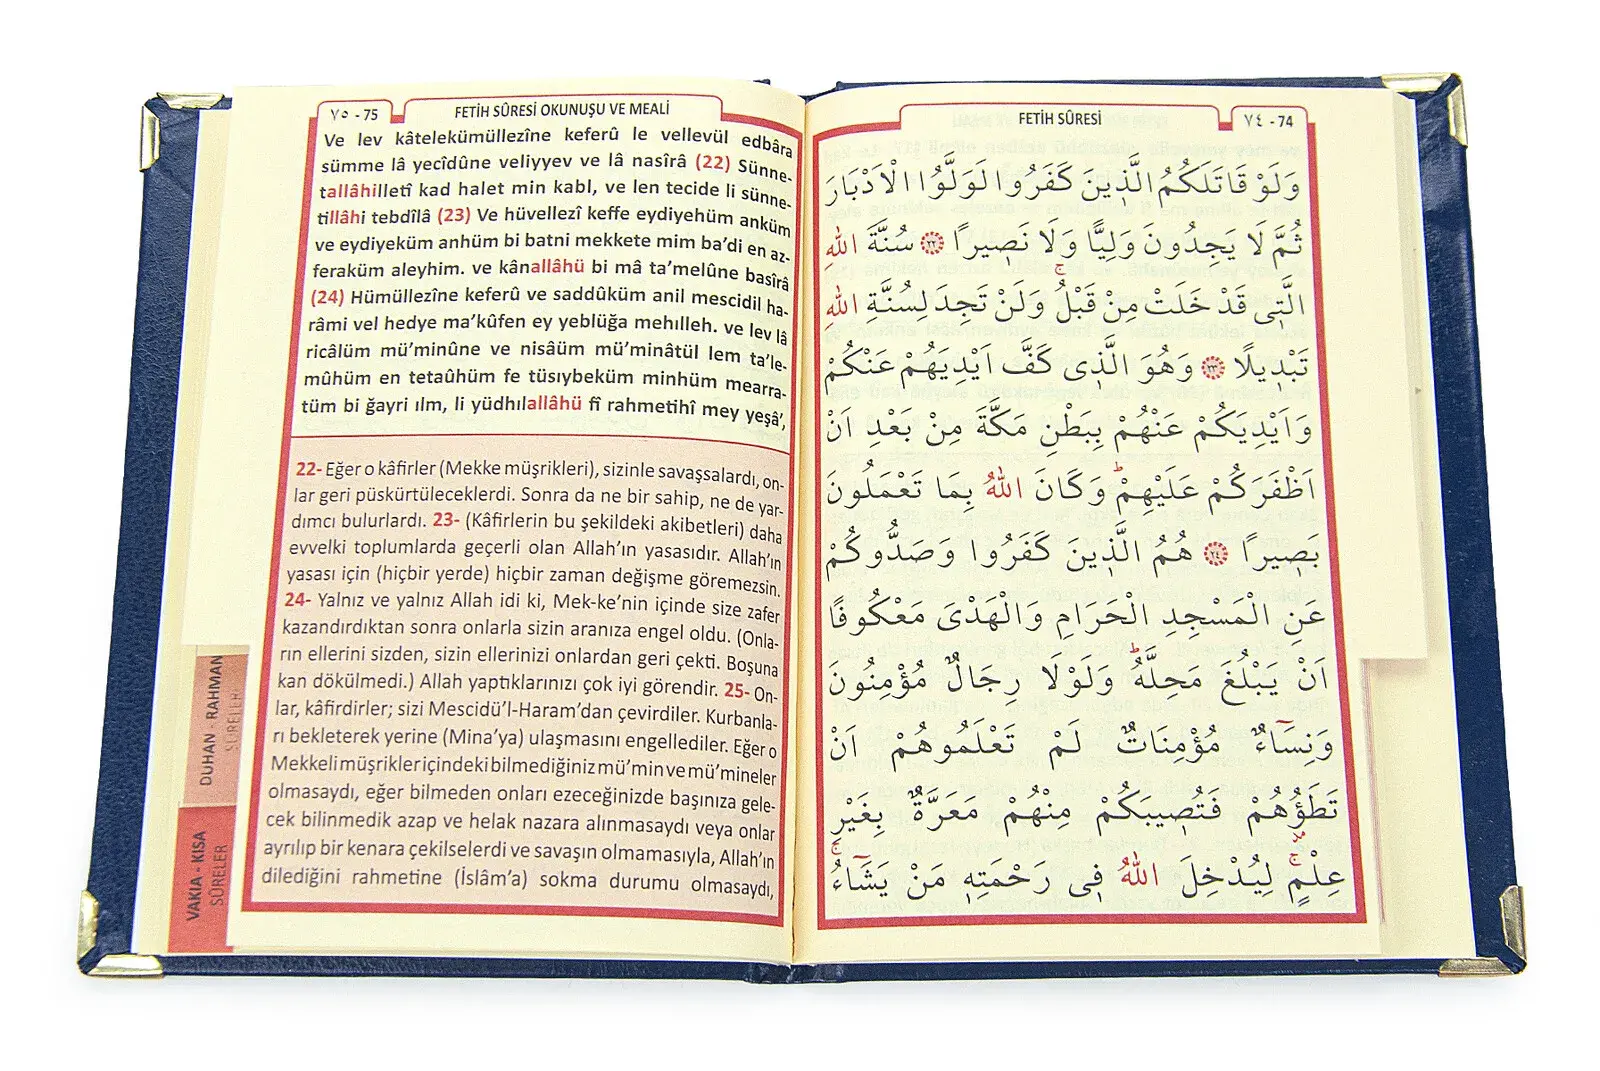 ٧٥ - 75
FETİH SÛRESİ OKUNUŞU VE MEALİ
Ve lev kâtelekümüllezîne keferû le vellevül edbâra
sümme lâ yecîdûne veliyyev ve lâ nasîrâ (22) Sünne-
tallâhilletî kad halet min kabl, ve len tecide li sünne-
tillâhi tebdîlâ (23) Ve hüvellezî keffe eydiyehüm anküm
ve eydiyeküm anhüm bi batni mekkete mim ba’di en az-
feraküm aleyhim. ve kânallâhü bi mâ ta’melûne basîrâ
(24) Hümüllezîne keferû ve saddûküm anil mescidil ha-
râmi vel hedye ma’kûfen ey yeblüğa mehılleh. ve lev lâ
ricâlüm mü’minûne ve nisâüm mü’minâtül lem ta’le-
mûhüm en tetaûhüm fe tüsıybeküm minhüm mearra-
tüm bi ğayri ılm, li yüdhılallâhü fî rahmetihî mey yeşâ’,
22- Eğer o kâfirler (Mekke müşrikleri), sizinle savaşsalardı, on-
lar geri püskürtüleceklerdi. Sonra da ne bir sahip, ne de yar-
dımcı bulurlardı. 23- (Kâfirlerin bu şekildeki akibetleri) daha
evvelki toplumlarda geçerli olan Allah’ın yasasıdır. Allah’ın
yasası için (hiçbir yerde) hiçbir zaman değişme göremezsin.
24- Yalnız ve yalnız Allah idi ki, Mek-ke’nin içinde size zafer
kazandırdıktan sonra onlarla sizin aranıza engel oldu. (Onla-
rın ellerini sizden, sizin ellerinizi onlardan geri çekti. Boşuna
kan dökülmedi.) Allah yaptıklarınızı çok iyi görendir. 25- On-
lar, kâfirdirler; sizi Mescidü’l-Haram’dan çevirdiler. Kurbanla-
rı bekleterek yerine (Mina’ya) ulaşmasını engellediler. Eğer o
Mekkeli müşrikler içindeki bilmediğiniz mü’min ve mü’mineler
olmasaydı, eğer bilmeden onları ezeceğinizde başınıza gele-
cek bilinmedik azap ve helak nazara alınmasaydı veya onlar
ayrılıp bir kenara çekilselerdi ve savaşın olmamasıyla, Allah’ın
dilediğini rahmetine (İslâm’a) sokma durumu olmasaydı,
DUHAN - RAHMAN
SÛRELER
VAKIA - KISA
SÛRELER
FETİH SÛRESİ
٧٤ - 74
وَلَوْ قَاتَلَكُمُ الَّذِينَ كَفَرُوا لَوَلَّوُا الْاَدْبَارَ
ثُمَّ لَا يَجِدُونَ وَلِيًّا وَلَا نَصِيرًا ٢٢ سُنَّةَ اللهِ
الَّتِى قَدْ خَلَتْ مِنْ قَبْلُ وَلَنْ تَجِدَ لِسُنَّةِ اللهِ
تَبْدِيلًا ٢٣ وَهُوَ الَّذِى كَفَّ اَيْدِيَهُمْ عَنْكُمْ
وَاَيْدِيَكُمْ عَنْهُمْ بِبَطْنِ مَكَّةَ مِنْ بَعْدِ اَنْ
اَظْفَرَكُمْ عَلَيْهِمْ وَكَانَ اللهُ بِمَا تَعْمَلُونَ
بَصِيرًا ٢٤ هُمُ الَّذِينَ كَفَرُوا وَصَدُّوكُمْ
عَنِ الْمَسْجِدِ الْحَرَامِ وَالْهَدْىَ مَعْكُوفًا
اَنْ يَبْلُغَ مَحِلَّهُ وَلَوْلَا رِجَالٌ مُؤْمِنُونَ
وَنِسَاءٌ مُؤْمِنَاتٌ لَمْ تَعْلَمُوهُمْ اَنْ
تَطَؤُهُمْ فَتُصِيبَكُمْ مِنْهُمْ مَعَرَّةٌ بِغَيْرِ
عِلْمٍ لِيُدْخِلَ اللهُ فِى رَحْمَتِهِ مَنْ يَشَاءُ